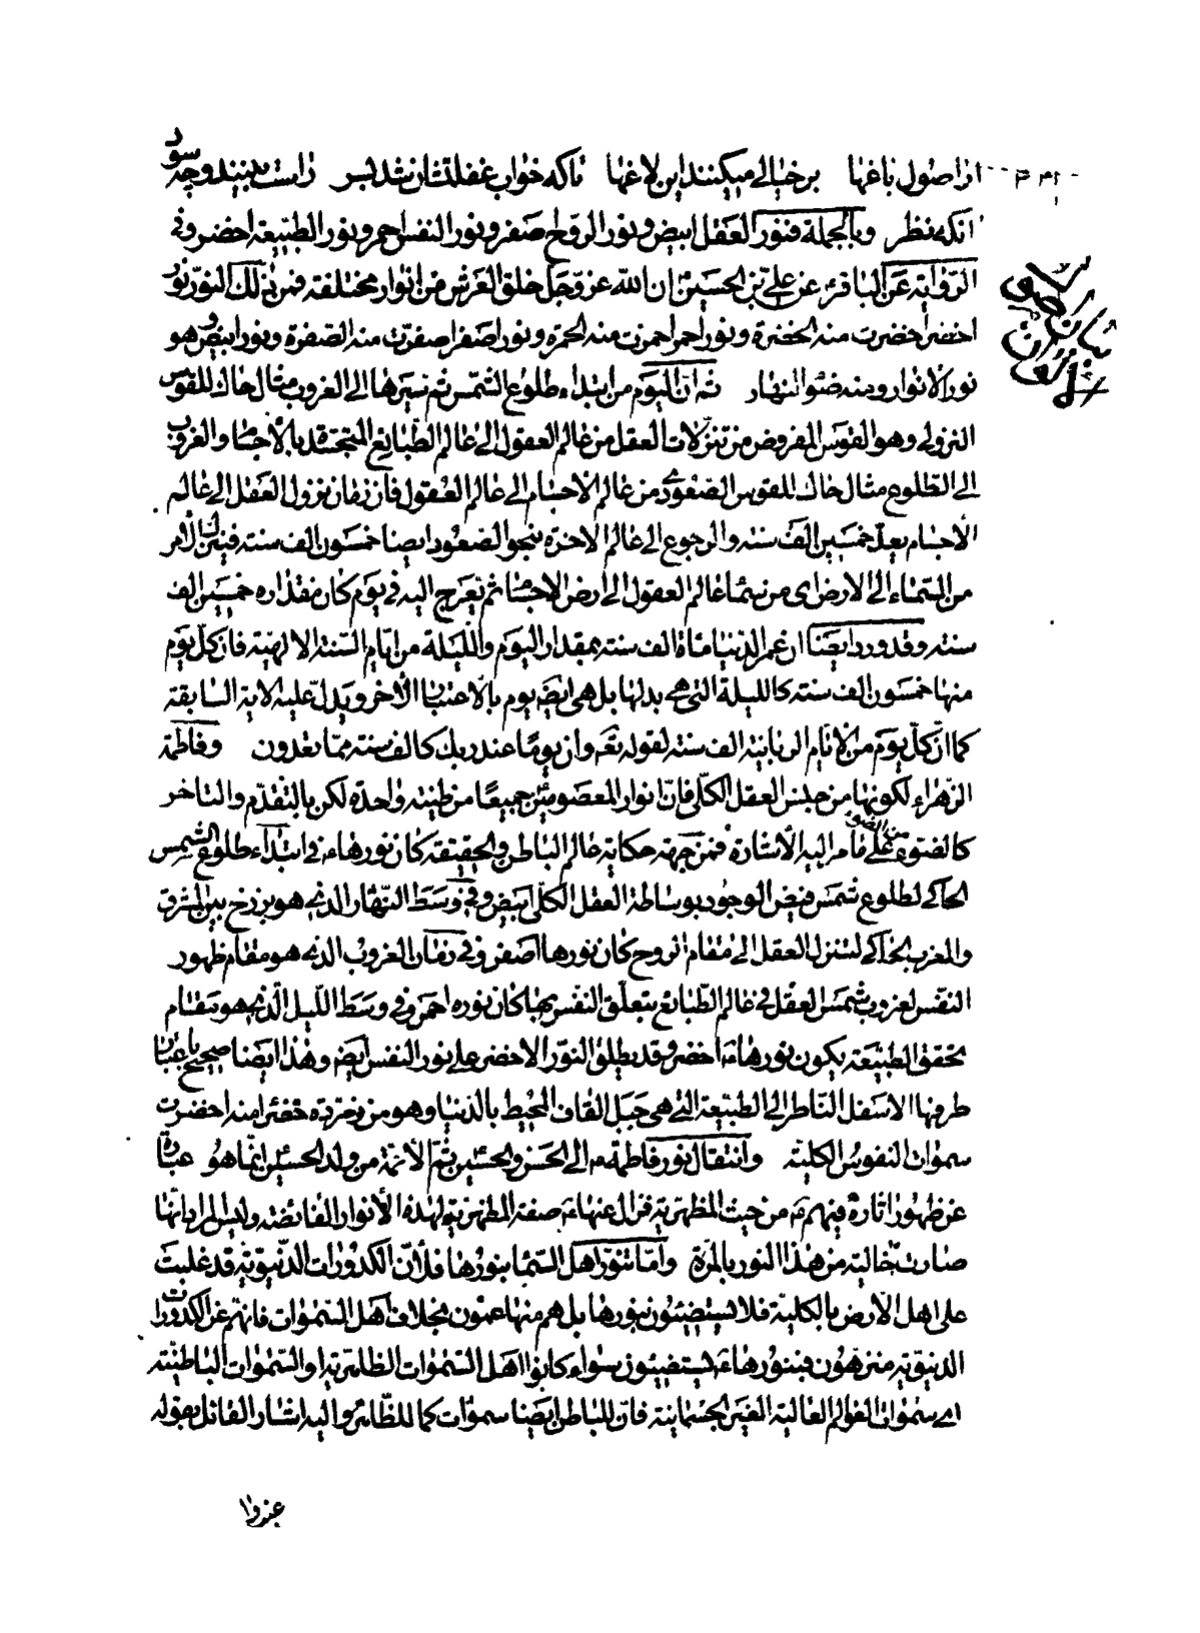 از اصول باغها برخیالی میکنند این لاغها تا که خواب غفلتشان شد بسر راست بینند و چه سود
آنکه نظر وبالجملة فنور العقل ابیض ونور الروح اصفر ونور النفس احمر ونور الطبیعة اخضر وفی
الروایة عن الباقر ع عن علی بن الحسین ع ان الله عز وجل خلق العرش من انوار مختلفة فمن ذلک النور نور
اخضر اخضرت منه الخضرة ونور احمر احمرت منه الحمرة ونور اصفر اصفرت منه الصفرة ونور ابیض وهو
نور الانوار ومنه ضوء النهار ثم ان الیوم من ابتداء طلوع الشمس ثم سیرها الی الغروب مثال حاک للقوس
النزولی وهو القوس المفروض من تنزلات العقل من عالم العقول الی عالم الطبائع المتجسدة بالاجسام والغروب
الی الطلوع مثال حاک للقوس الصعودی من عالم الاجسام الی عالم العقول فان زمان نزول العقل الی عالم
الاجسام بعد خمسین الف سنة والرجوع الی عالم الاخرة بنحو الصعود ایضا خمسون الف سنة فینزل الامر
من السماء الی الارض ای من سماء عالم العقول الی ارض الاجسام ثم یعرج الیه فی یوم کان مقداره خمسین الف
سنة وقد ورد ایضا ان عمر الدنیا مأة الف سنة بمقدار الیوم واللیلة من ایام السنة الالهیة فان کل یوم
منها خمسون الف سنة کاللیلة التی هی بدلها بل هی ایضا یوم بالاعتبار الاخر ویدل علیه الایة السابقة
کما ان کل یوم من الایام الربانیة الف سنة لقوله تعم وان یوما عند ربک کالف سنة مما تعدون وفاطمة
الزهراء لکونها من جنس العقل الکلی فان انوار المعصومین جمیعا من طینة واحدة لکن بالتقدم والتاخر
کالضوء من الضوء علی ما مر الیه الاشارة فمن جهة حکایة عالم الباطن والحقیقة کان نورها ع فی ابتداء طلوع الشمس
الحاکی لطلوع شمس فیض الوجود بوساطة العقل الکلی ابیض وفی وسط النهار الذی هو برزخ بین المشرق
والمغرب الحاکی لتنزل العقل الی مقام الروح کان نورها اصفر وفی زمان الغروب الذی هو مقام ظهور
النفس لغروب شمس العقل فی عالم الطبائع بتعلق النفس بها کان نوره احمر وفی وسط اللیل الذی هو مقام
تحقق الطبیعة یکون نورها ع اخضر وقد یطلق النور الاخضر علی نور النفس ایضا وهذا ایضا صحیح باعتبار
طرفها الاسفل الناظر الی الطبیعة التی هی جبل القاف المحیط بالدنیا وهو من زمردة خضراء منه اخضرت
سموات النفوس الکلیة وانتقال نور فاطمة ع الی الحسن والحسین ثم الائمة من ولد الحسین انما هو عبارة
عن ظهور اثاره فیهم ع من حیث المظهریة فزال عنها ع صفة المظهریة لهذه الانوار الفائضة ولیس المراد انها
صارت خالیة من هذا النور بالمرة واما تنور اهل السماء بنورها فلان الکدورات الدنیویة قد غلبت
علی اهل الارض بالکلیة فلا یستضیئون بنورها بل هم منها عمون بخلاف اهل السموات فانهم عن الکدورات
الدنیویة منزهون فبنورها ع یستضیئون سواء کانوا اهل السموات الظاهریة او السموات الباطنیة
ای سموات العوالم العالیة الغیر الجسمانیة فان للباطن ایضا سموات کما للظاهر والیه اشار القائل بقوله